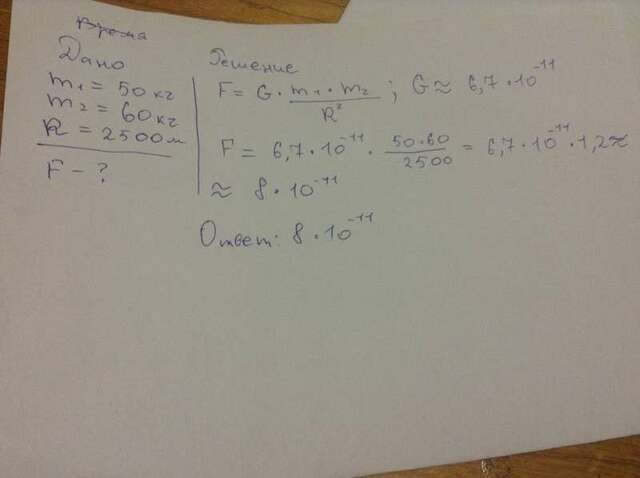 Время
Дано
m₁ = 50 кг
m₂ = 60 кг
R = 2500 м
F - ?
Решение
F = G · m₁ · m₂ / R² ; G ≈ 6,7 · 10⁻¹¹
F = 6,7 · 10⁻¹¹ · 50·60 / 2500 = 6,7 · 10⁻¹¹ · 1,2 ≈
≈ 8 · 10⁻¹¹
Ответ: 8 · 10⁻¹¹